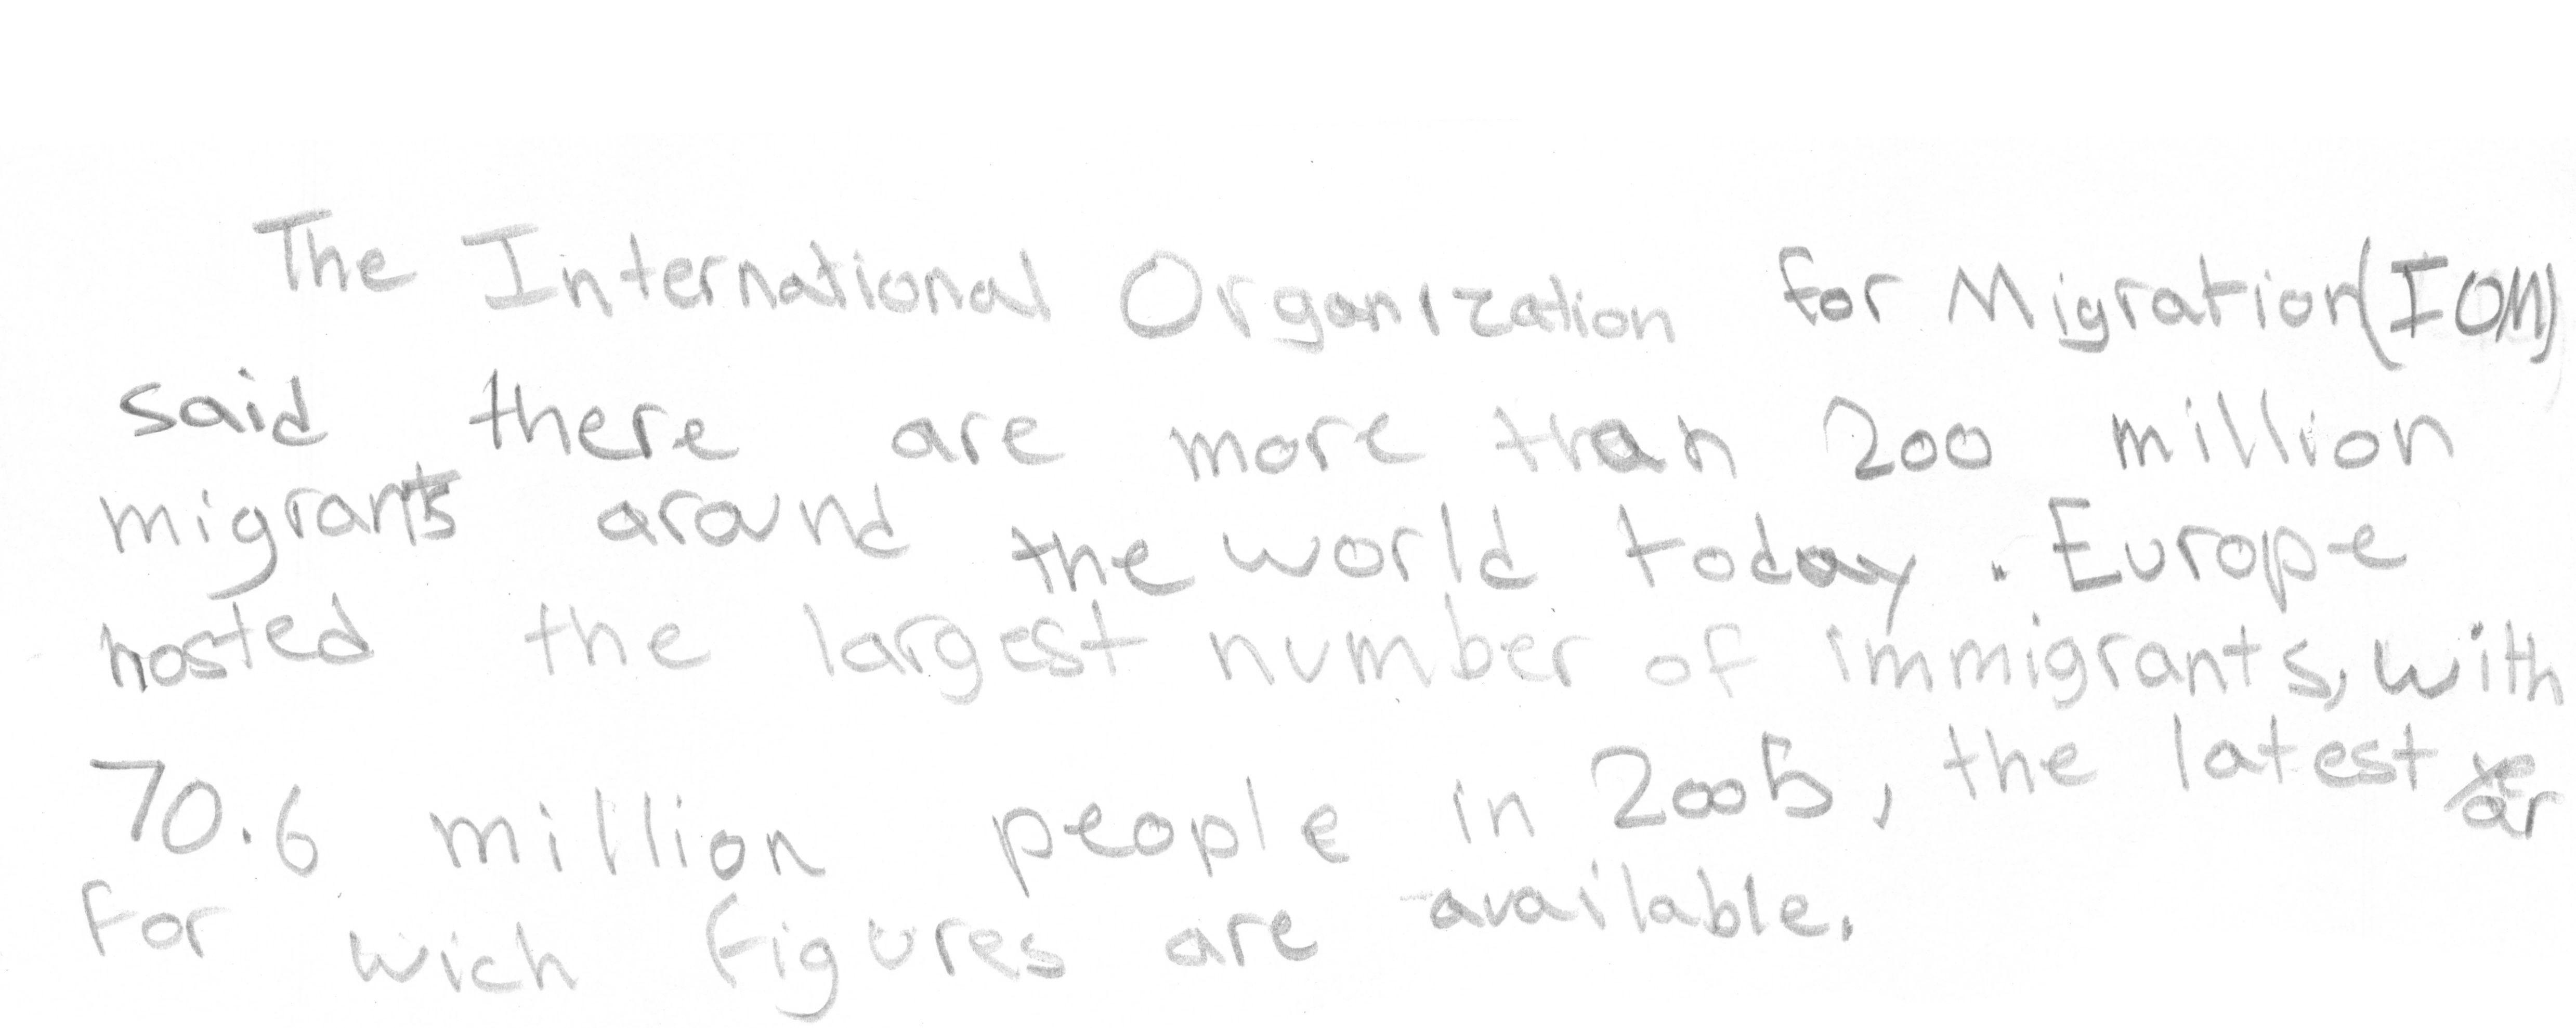 The International Organization for Migration (IOM)
said there are more than 200 million
migrants around the world today. Europe
hosted the largest number of immigrants, with
70.6 million people in 2005, the latest year
for wich figures are available.